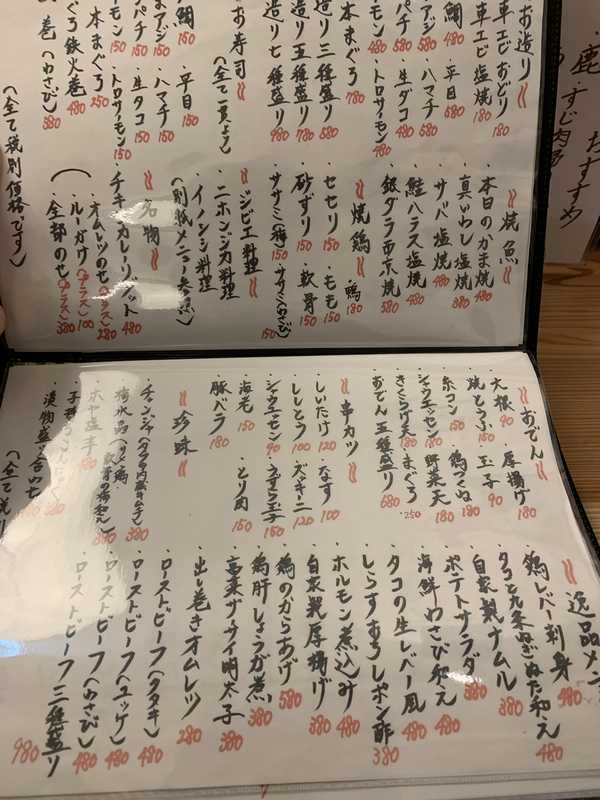 お造り
車エビおどり 180
車エビ塩焼 180
鯛 480
平目 580
アジ 580
ハマチ 580
パチ 480
生ダコ 480
モン 480
トロサーモン 480
本まぐろ 780
造り三種盛り 580
造り五種盛り 780
造り七種盛り 980
お寿司
(全て一貫より)
鯛 150
平目 150
まアジ 150
ハマチ 150
パチ 150
生タコ 150
サーモン 150
トロサーモン 150
本まぐろ 250
ろ鉄火巻 480
巻(わさび) 380
(全て税別価格です)
焼魚
本日のかま焼 480
真いわし塩焼 380
サバ塩焼 480
鮭ハラス塩焼 480
銀ダラ西京焼 580
焼鶏
鴨 180
セセリ 150
もも 150
砂ずり 150
軟骨 150
ササミ(梅) 150
ササミ(わさび) 150
ジビエ料理
ニホンジカ料理
イノシシ料理
(別紙メニュー参照)
名物
チキンカレーリゾット 480
オムレツのせ(プラス) 280
ルーがけ(プラス) 100
全部のせ(プラス) 380
おすすめ
おでん
大根 90
厚揚げ 180
焼とうふ 150
玉子 90
糸コン 150
鶏つくね 180
シャウエッセン 180
野菜天 180
きくらげ天 180
まぐろ 250
おでん五種盛り 680
串カツ
しいたけ 120
なす 100
ししとう 100
ズッキーニ 120
シャウエッセン 90
うずら玉子 150
海老 150
とり肉 150
豚バラ 180
珍味
チャンジャ(タラの内臓のキムチ) 380
梅水晶(サメの軟骨の梅和え) 380
ホヤ塩辛 380
漬物盛り合わせ 380
(全て税別
逸品メニ
鶏レバー刺身 480
タコと九条ねぎぬた和え 480
自家製ナムル 380
ポテトサラダ 380
海鮮わさび和え 480
タコの生レバー風 480
しらすおろしポン酢 380
ホルモン煮込み 480
自家製厚揚げ 380
鶏のからあげ 580
鶏肝しょうが煮 380
高菜ザーサイ明太子 380
出し巻きオムレツ 280
ローストビーフ(タタキ) 480
ローストビーフ(ユッケ) 480
ローストビーフ(わさび) 480
ローストビーフ三種盛り 980